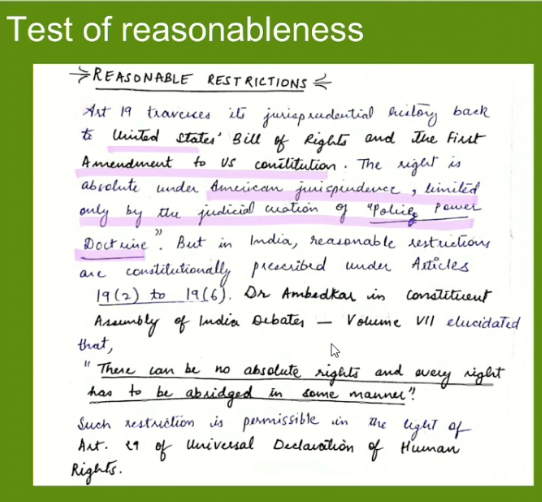 Test of reasonableness
REASONABLE RESTRICTIONS
Art 19 traverses its jurisprudential history back
to United States' Bill of Rights and the First
Amendment to US constitution. The right is
absolute under American jurisprudence, limited
only by the judicial creation of "Police Power
Doctrine". But in India, reasonable restrictions
are constitutionally prescribed under Articles
19(2) to 19(6). Dr Ambedkar in constituent
Assembly of India Debates – Volume VII elucidated
that,
"There can be no absolute rights and every right
has to be abridged in some manner".
Such restriction is permissible in the light of
Art. 29 of Universal Declaration of Human
Rights.